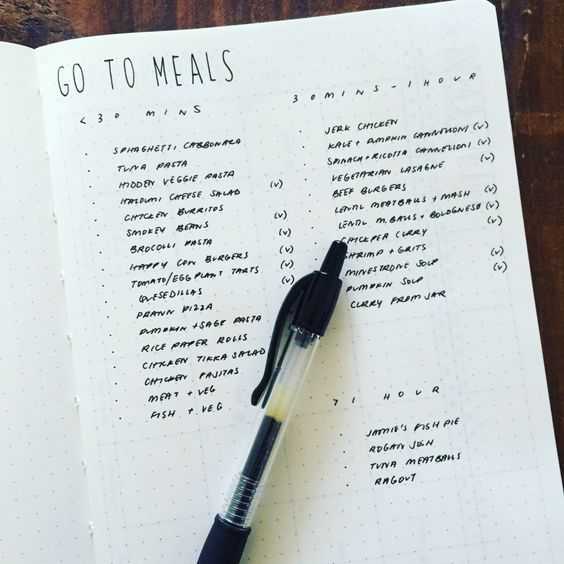 GO TO MEALS
<30 MINS
SPHAGHETTI CARBONARA
TUNA PASTA
HIDDEN VEGGIE PASTA
HALOUMI CHEESE SALAD (V)
CHICKEN BURRITOS
SMOKEY BEANS (V)
BROCOLLI PASTA (V)
HAPPY COW BURGERS (V)
TOMATO/EGGPLANT TARTS (V)
QUESEDILLAS (V)
PRAWN PIZZA
PUMPKIN + SAGE PASTA
RICE PAPER ROLLS
CHICKEN TIKKA SALAD
CHICKEN FAJITAS
MEAT + VEG
FISH + VEG
30MINS-1HOUR
JERK CHICKEN
KALE + PUMPKIN CANNELLONI (V)
SPINACH + RICOTTA CANNELLONI (V)
VEGETARIAN LASAGNE (V)
BEEF BURGERS
LENTIL MEATBALLS + MASH (V)
LENTIL M.BALLS + BOLOGNESE (V)
CHICKPEA CURRY (V)
SHRIMP + GRITS
MINESTRONE SOUP (V)
PUMPKIN SOUP (V)
CURRY FROM JAR
>1 HOUR
JAMIE'S FISH PIE
ROGAN JOSH
TUNA MEATBALLS
RAGOUT